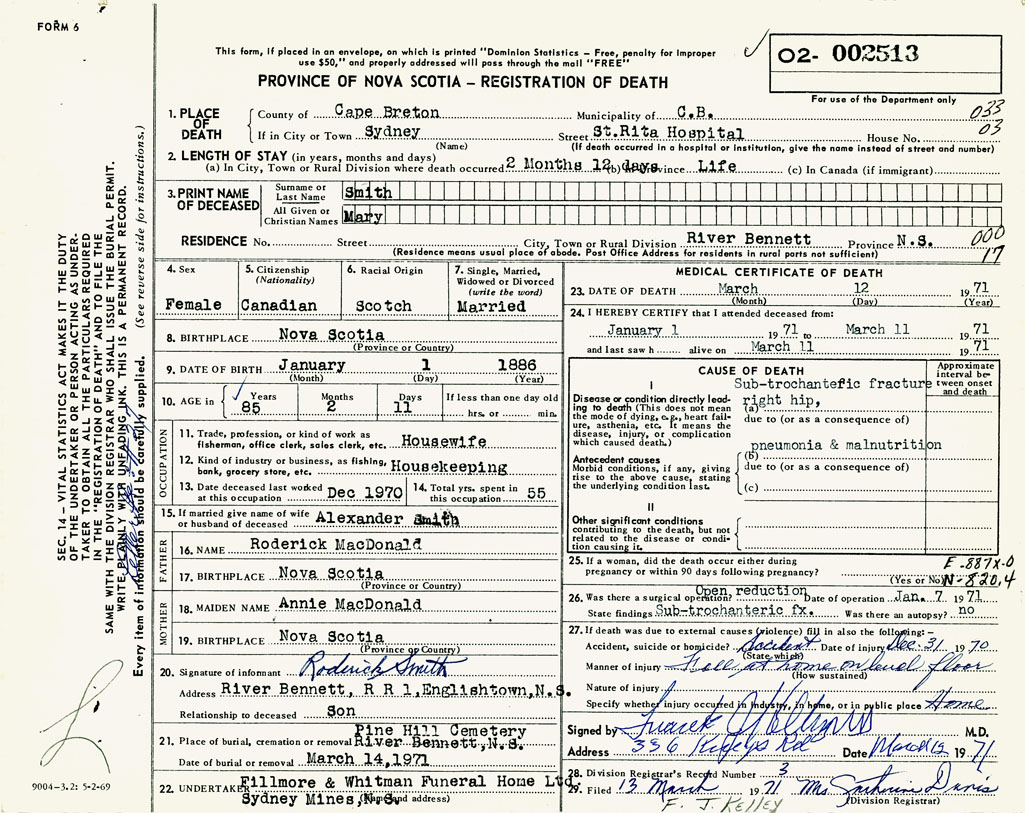 FORM 6
This form, if placed in an envelope, on which is printed "Dominion Statistics – Free, penalty for improper
use $50," and properly addressed will pass through the mail "FREE"
O2- 002513
PROVINCE OF NOVA SCOTIA – REGISTRATION OF DEATH
For use of the Department only
1. PLACE OF DEATH
County of Cape Breton Municipality of C.B. 033
If in City or Town Sydney Street St.Rita Hospital House No. 03
(Name) (If death occurred in a hospital or institution, give the name instead of street and number)
2. LENGTH OF STAY (in years, months and days)
(a) In City, Town or Rural Division where death occurred 2 Months 12 days (b) Province Life (c) In Canada (if immigrant)
3. PRINT NAME OF DECEASED
Surname or Last Name Smith
All Given or Christian Names Mary
RESIDENCE No. Street City, Town or Rural Division River Bennett Province N.S. 000
(Residence means usual place of abode. Post Office Address for residents in rural parts not sufficient) 17
4. Sex
Female
5. Citizenship
(Nationality)
Canadian
6. Racial Origin
Scotch
7. Single, Married,
Widowed or Divorced
(write the word)
Married
8. BIRTHPLACE Nova Scotia
(Province or Country)
9. DATE OF BIRTH January 1 1886
(Month) (Day) (Year)
10. AGE in Years Months Days If less than one day old
85 2 11 hrs. or min.
OCCUPATION
11. Trade, profession, or kind of work as
fisherman, office clerk, sales clerk, etc. Housewife
12. Kind of industry or business, as fishing,
bank, grocery store, etc. Housekeeping
13. Date deceased last worked
at this occupation Dec 1970
14. Total yrs. spent in
this occupation 55
15. If married give name of wife
or husband of deceased Alexander Smith
FATHER
16. NAME Roderick MacDonald
17. BIRTHPLACE Nova Scotia
(Province or Country)
MOTHER
18. MAIDEN NAME Annie MacDonald
19. BIRTHPLACE Nova Scotia
(Province or Country)
20. Signature of informant Roderick Smith
Address River Bennett, R R 1,Englishtown,N.S.
Relationship to deceased Son
Pine Hill Cemetery
21. Place of burial, cremation or removal River Bennett,N.S.
Date of burial or removal March 14,1971
22. UNDERTAKER Fillmore & Whitman Funeral Home Ltd.
Sydney Mines, N.S. (Name and address)
MEDICAL CERTIFICATE OF DEATH
23. DATE OF DEATH March 12 1971
(Month) (Day) (Year)
24. I HEREBY CERTIFY that I attended deceased from:
January 1 1971 to March 11 1971
and last saw h alive on March 11 1971
CAUSE OF DEATH
Approximate
interval be-
tween onset
and death
I
Disease or condition directly lead-
ing to death (This does not mean
the mode of dying, e.g., heart fail-
ure, asthenia, etc. It means the
disease, injury, or complication
which caused death.)
Sub-trochanteric fracture
right hip,
(a)
due to (or as a consequence of)
pneumonia & malnutrition
(b)
due to (or as a consequence of)
(c)
Antecedent causes
Morbid conditions, if any, giving
rise to the above cause, stating
the underlying condition last.
II
Other significant conditions
contributing to the death, but not
related to the disease or condi-
tion causing it.
25. If a woman, did the death occur either during
pregnancy or within 90 days following pregnancy?
(Yes or No)
E-887X-0
N-820.4
26. Was there a surgical operation? Open reduction Date of operation Jan. 7 1971
State findings Sub-trochanteric fx. Was there an autopsy? no
27. If death was due to external causes (violence) fill in also the following:–
Accident, suicide or homicide? Accident Date of injury Dec-31 1970
(State which)
Manner of injury Fall at home on level floor
(How sustained)
Nature of injury
Specify whether injury occurred in industry, in home, or in public place Home
Signed by M.D.
Address 336 Kings Rd Date March 12 1971
28. Division Registrar's Record Number 3
29. Filed 13 March 1971 Mrs Davis
F. J. KELLEY (Division Registrar)
SEC. 14 – VITAL STATISTICS ACT MAKES IT THE DUTY
OF THE UNDERTAKER OR PERSON ACTING AS UNDER-
TAKER TO OBTAIN ALL THE PARTICULARS REQUIRED
IN THE "REGISTRATION OF DEATH" AND TO FILE THE
SAME WITH THE DIVISION REGISTRAR WHO SHALL ISSUE THE BURIAL PERMIT.
WRITE PLAINLY WITH UNFADING INK. THIS IS A PERMANENT RECORD.
Every item of information should be carefully supplied. (See reverse side for instructions.)
9004-3.2: 5-2-69